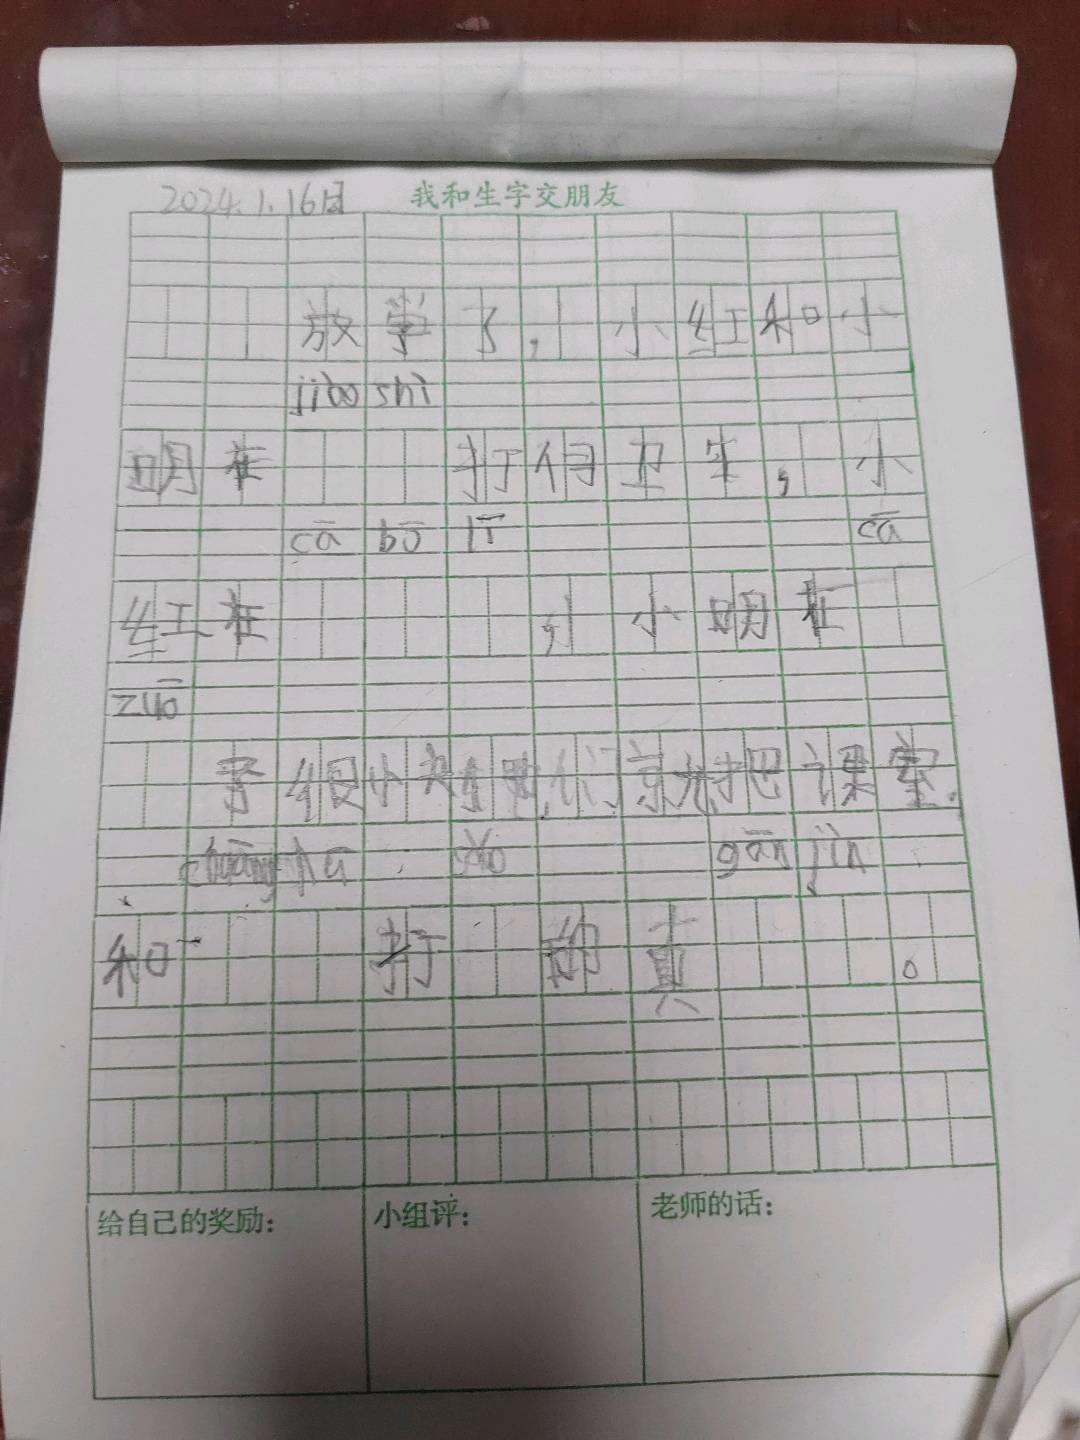 2024.1.16日
我和生字交朋友
放学了，小红和小
jiao shi
明在 打得卫生，小
cā bō lī
cā
红在 ，小明在
zuō
子 们 把课室
chuāng hu
gān jin
和 打 的真 。
给自己的奖励：
小组评：
老师的话：